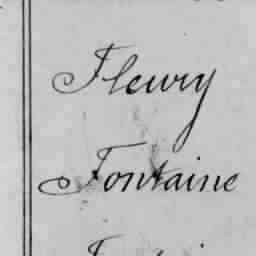 Fleury
Fontaine